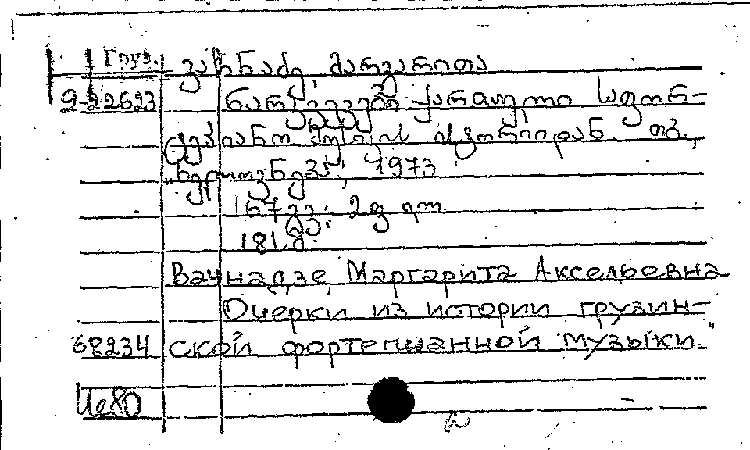 Груз. ვაჩნაძე, მარგარიტა
ნარკვევები ქართული საფორ-
ტეპიანო მუსიკის ისტორიიდან. თბ.,
"ხელოვნება", 1973
167 გვ.; 2 ფ
181
Вачнадзе, Маргарита Аксельевна
Очерки из истории грузин-
68234 ской фортепианной музыки."
Це80